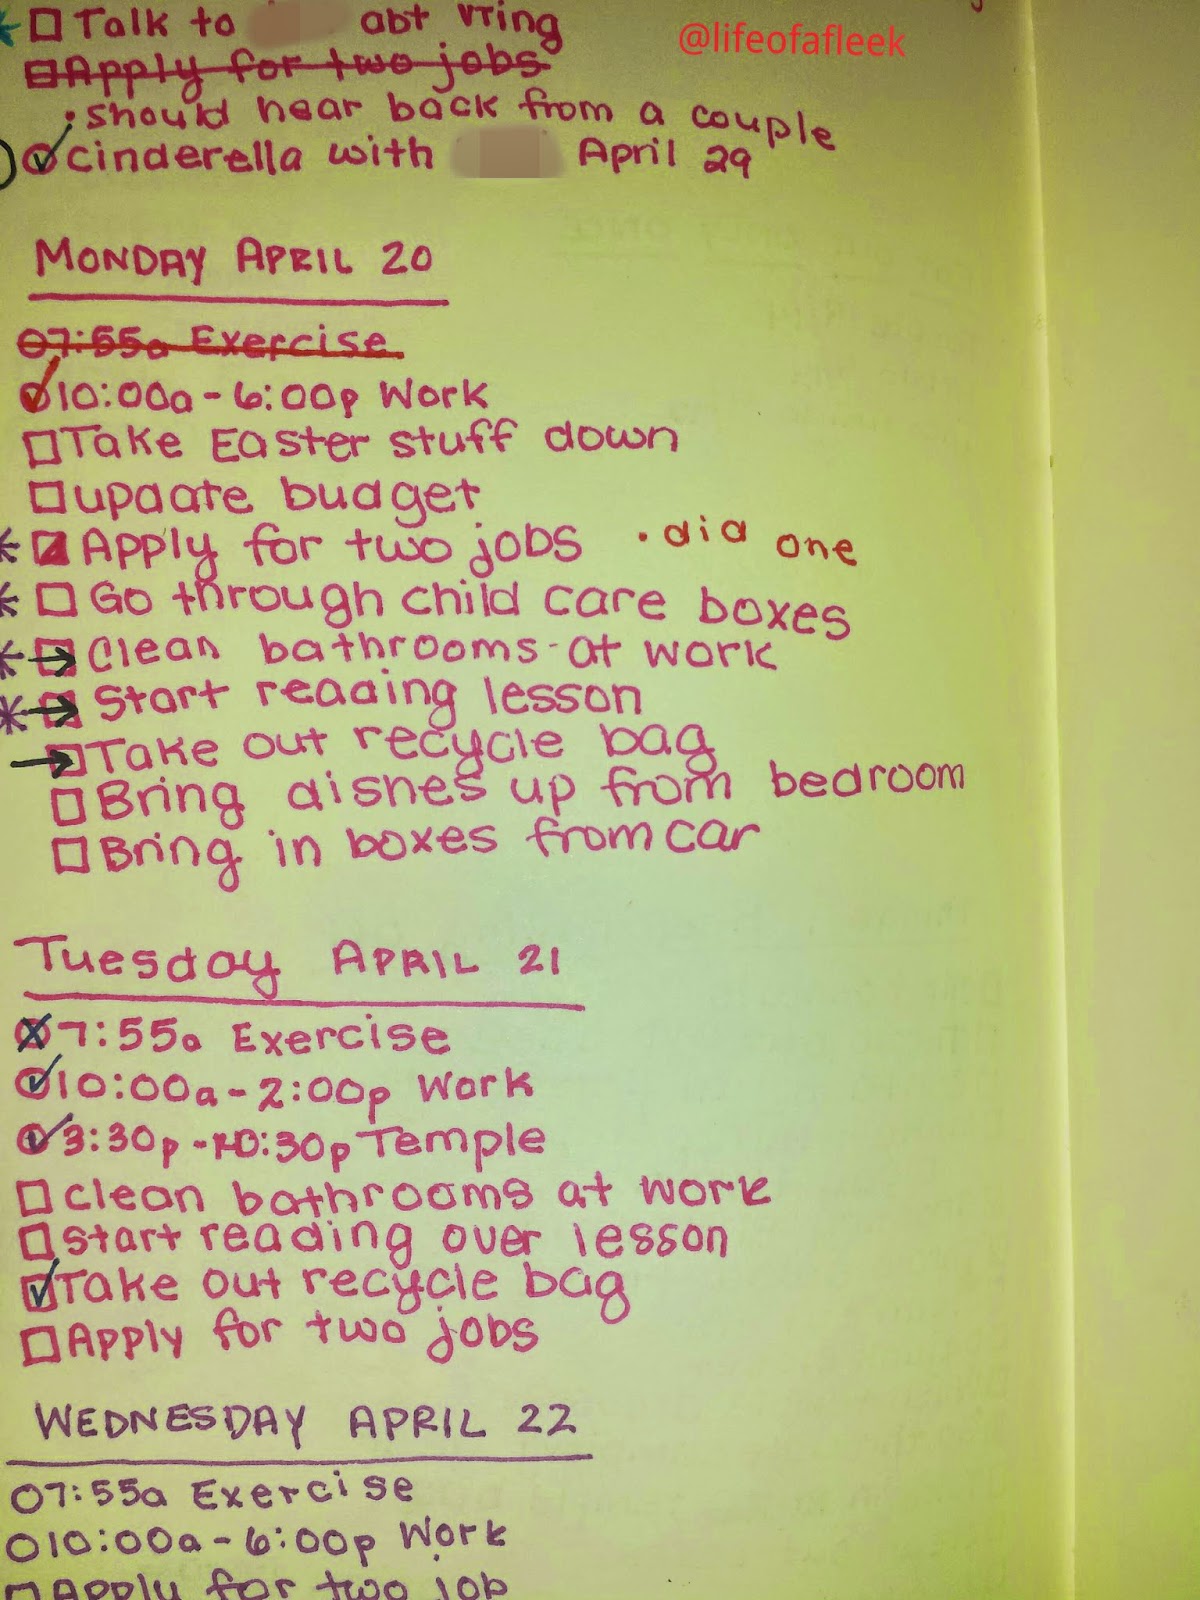 Talk to abt VTing
@lifeofafleek
Apply for two jobs
• should hear back from a couple
cinderella with April 29
MONDAY APRIL 20
07:55a Exercise
10:00a - 6:00p Work
Take Easter stuff down
update budget
Apply for two jobs • did one
Go through child care boxes
Clean bathrooms at work
Start reading lesson
Take out recycle bag
Bring dishes up from bedroom
Bring in boxes from car
Tuesday APRIL 21
7:55a Exercise
10:00a - 2:00p Work
3:30p - 10:30p Temple
clean bathrooms at work
start reading over lesson
Take out recycle bag
Apply for two jobs
WEDNESDAY APRIL 22
07:55a Exercise
10:00a - 6:00p Work
Apply for two job